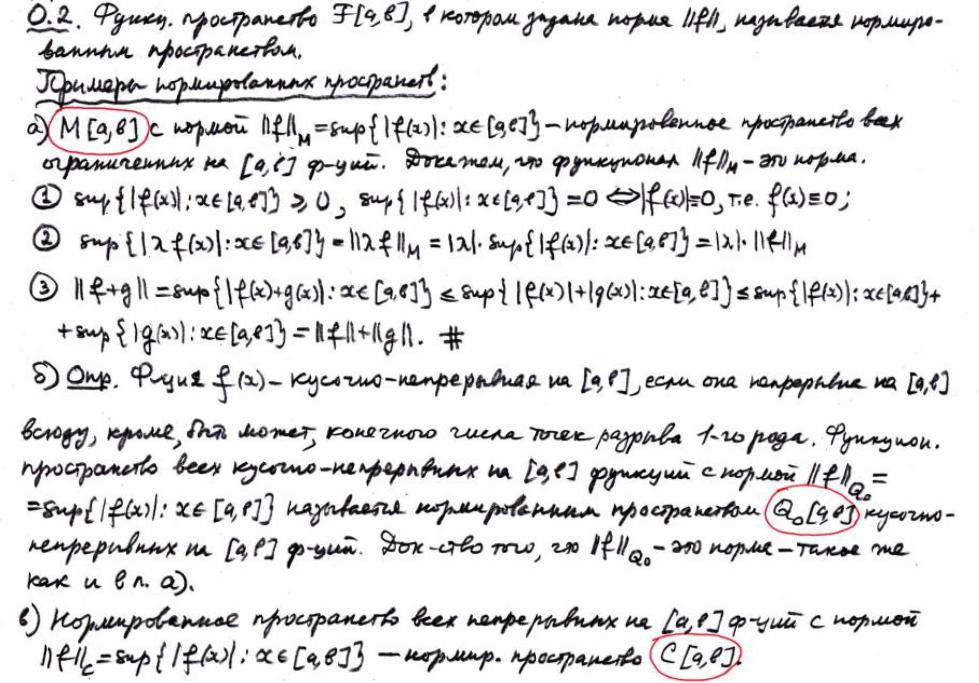 О.2. Функц. пространство F[a,b], в котором задана норма ||f||, называется нормиро-
ванным пространством.
Примеры нормированных пространств:
а) M[a,b] с нормой ||f||_M = sup{|f(x)|: x∈[a,b]} – нормированное пространство всех
ограниченных на [a,b] ф-ций. Докажем, что функционал ||f||_M – это норма.
① sup{|f(x)|: x∈[a,b]} ≥ 0, sup{|f(x)|: x∈[a,b]} = 0 ⇔ |f(x)| ≡ 0, т.е. f(x) ≡ 0;
② sup{|λf(x)|: x∈[a,b]} = ||λf||_M = |λ|· sup{|f(x)|: x∈[a,b]} = |λ|· ||f||_M
③ ||f+g|| = sup{|f(x)+g(x)|: x∈[a,b]} ≤ sup{|f(x)|+|g(x)|: x∈[a,b]} ≤ sup{|f(x)|: x∈[a,b]} +
+ sup{|g(x)|: x∈[a,b]} = ||f|| + ||g||. #
б) Опр. Ф-ция f(x) – кусочно-непрерывная на [a,b], если она непрерывна на [a,b]
всюду, кроме, быть может, конечного числа точек разрыва 1-го рода. Функцион.
пространство всех кусочно-непрерывных на [a,b] функций с нормой ||f||_Q₀ =
= sup{|f(x)|: x∈[a,b]} называется нормированным пространством Q₀[a,b] кусочно-
непрерывных на [a,b] ф-ций. Док-ство того, что ||f||_Q₀ – это норма – такое же
как и в п. а).
в) Нормированное пространство всех непрерывных на [a,b] ф-ций с нормой
||f||_C = sup{|f(x)|: x∈[a,b]} – нормир. пространство C[a,b].